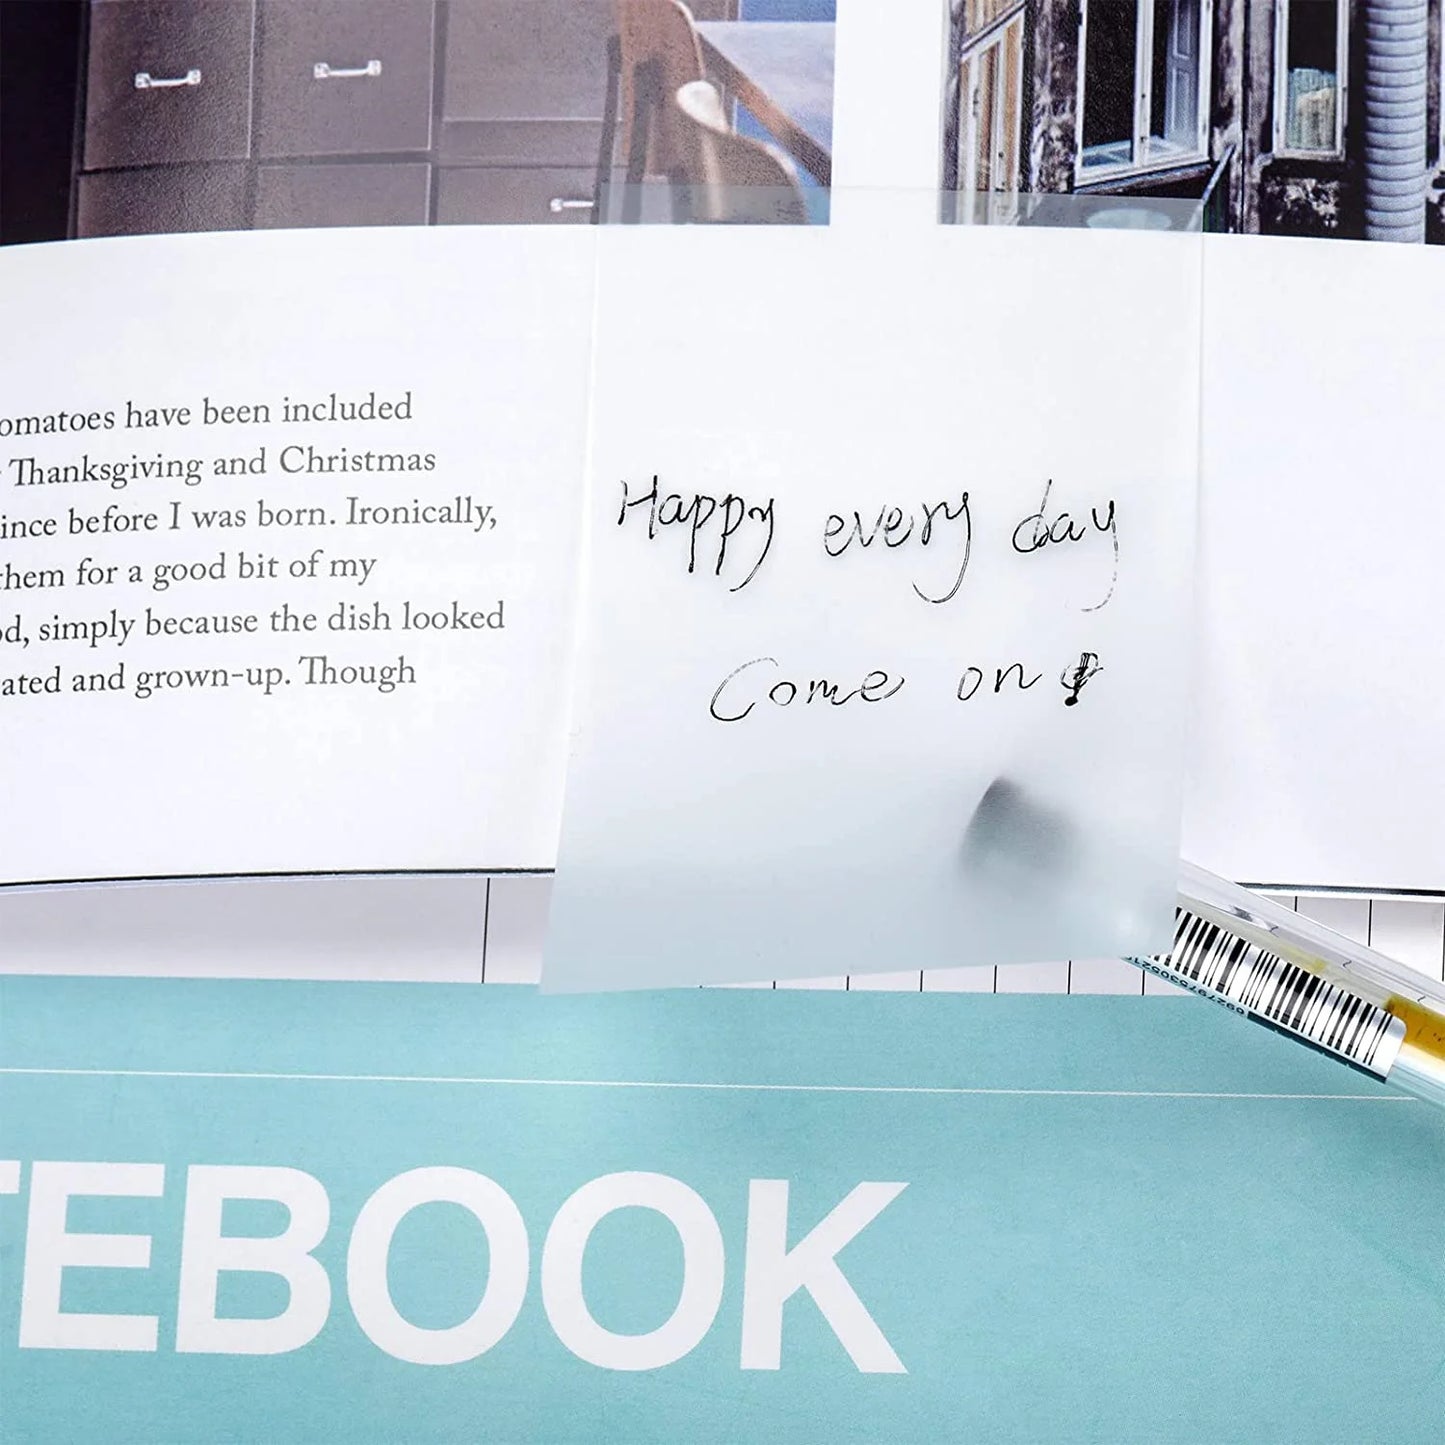 omatoes have been included
Thanksgiving and Christmas
ince before I was born. Ironically,
hem for a good bit of my
d, simply because the dish looked
ated and grown-up. Though
Happy every day
Come on!
TEBOOK